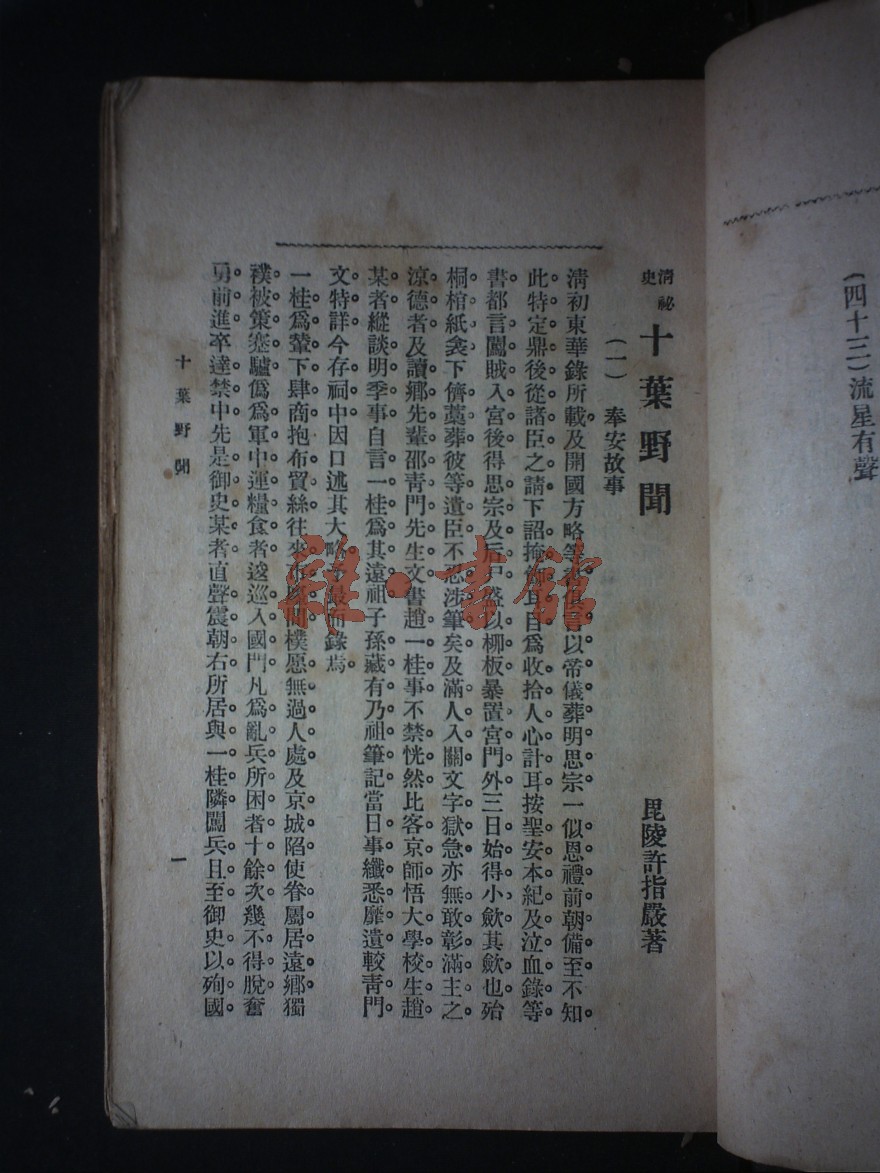 (四十三)流星有聲
清祕史
十葉野聞
毘陵許指嚴著
(一)奉安故事
清初東華錄所載及開國方略等書俱言以帝儀葬明思宗一似恩禮前朝備至不知
此特定鼎後從諸臣之請下詔掩飾耳目爲收拾人心計耳按聖安本紀及泣血錄等
書都言闖賊入宮後得思宗及后尸盛以柳板暴置宮門外三日始得小歛其歛也殆
桐棺紙衾下儕藁葬彼等遺臣不忍涉筆矣及滿人入關文字獄急亦無敢彰滿主之
涼德者及讀鄉先輩邵靑門先生文書趙一桂事不禁恍然比客京師悟大學校生趙
某者縱談明季事自言一桂爲其遠祖子孫藏有乃祖筆記當日事纖悉靡遺較靑門
文特詳今存祠中因口述其大略予最而錄焉
一桂爲輦下肆商抱布貿絲往來市廛間樸愿無過人處及京城陷使眷屬居遠鄉獨
襆被策蹇驢僞爲軍中運糧食者逡巡入國門凡爲亂兵所困者十餘次幾不得脫奮
勇前進卒達禁中先是御史某者直聲震朝右所居與一桂隣闖兵且至御史以殉國
十葉野聞
一
雜·書館